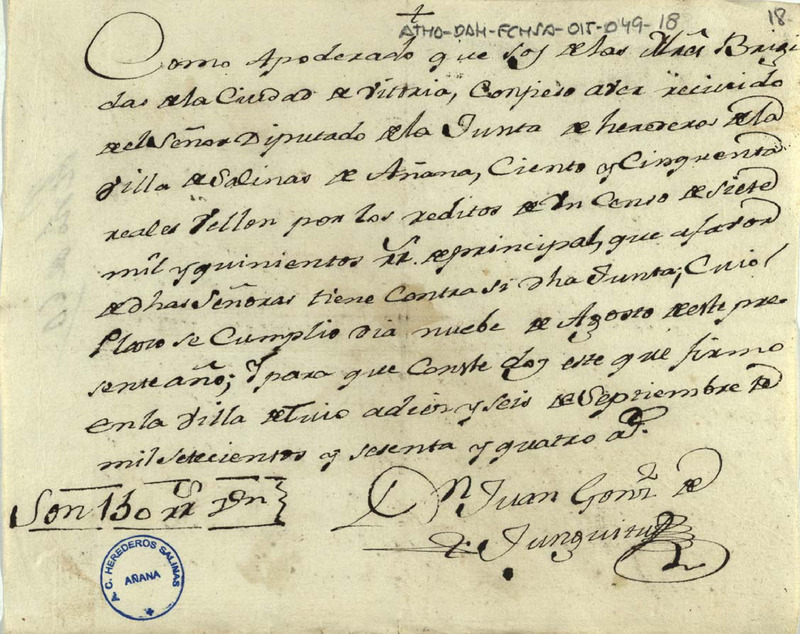 +
ATHA-DAH-FCHSA-015-049-18
18-
Como Apoderado que soy de las M.res Brigi
das de la Ciudad de Vitoria, Confieso aver recivido
del Señor Diputado de la Junta de herederos de la
Villa de Salinas de Añana, Ciento y Cinquenta
reales Vellon por los reditos de Un Censo de Siete
mil y quinientos rr.s de principal, que a favor
de dhas Señoras tiene Contra si dha Junta, Cuio
Plazo se Cumplio dia nuebe de Agosto de este pre
sente año; Y para que Conste doy este que firmo
en la Villa de adiez y seis de Septiembre de
mil setecientos y sesenta y quatro a.s
Son 150 rr.s Vn
Dn Juan Gonz.z de
Junguitu
A. C. HEREDEROS SALINAS
AÑANA